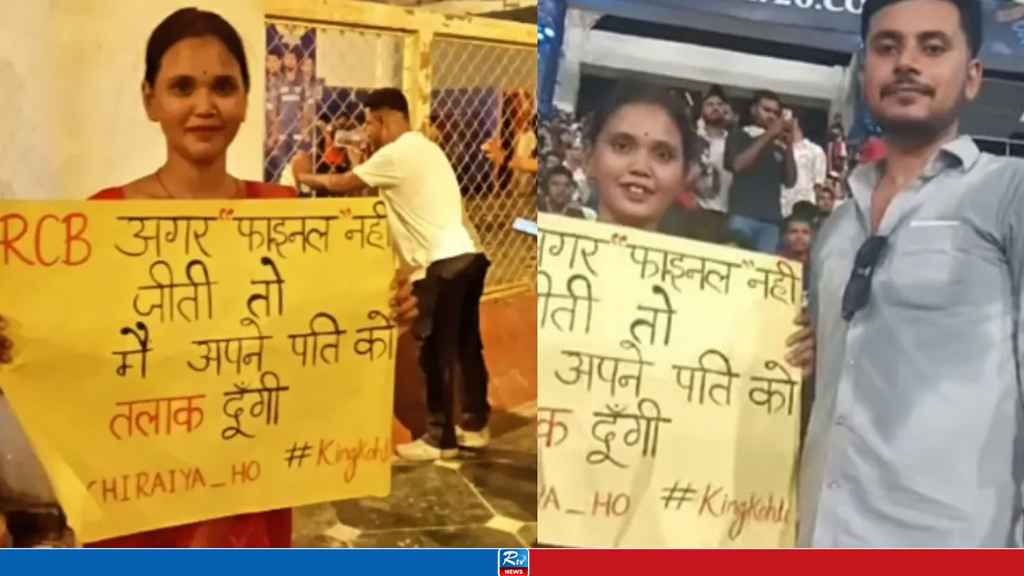 RCB अगर "फाइनल" नही
जीती तो
मै अपने पति को
तलाक दूँगी
#Kingkohli
CHIRAIYA_HO
20.co
गर "फाइनल" नही
ती तो
अपने पति को
क दूँगी
YA_HO #Kingkohli
Rtv
NEWS